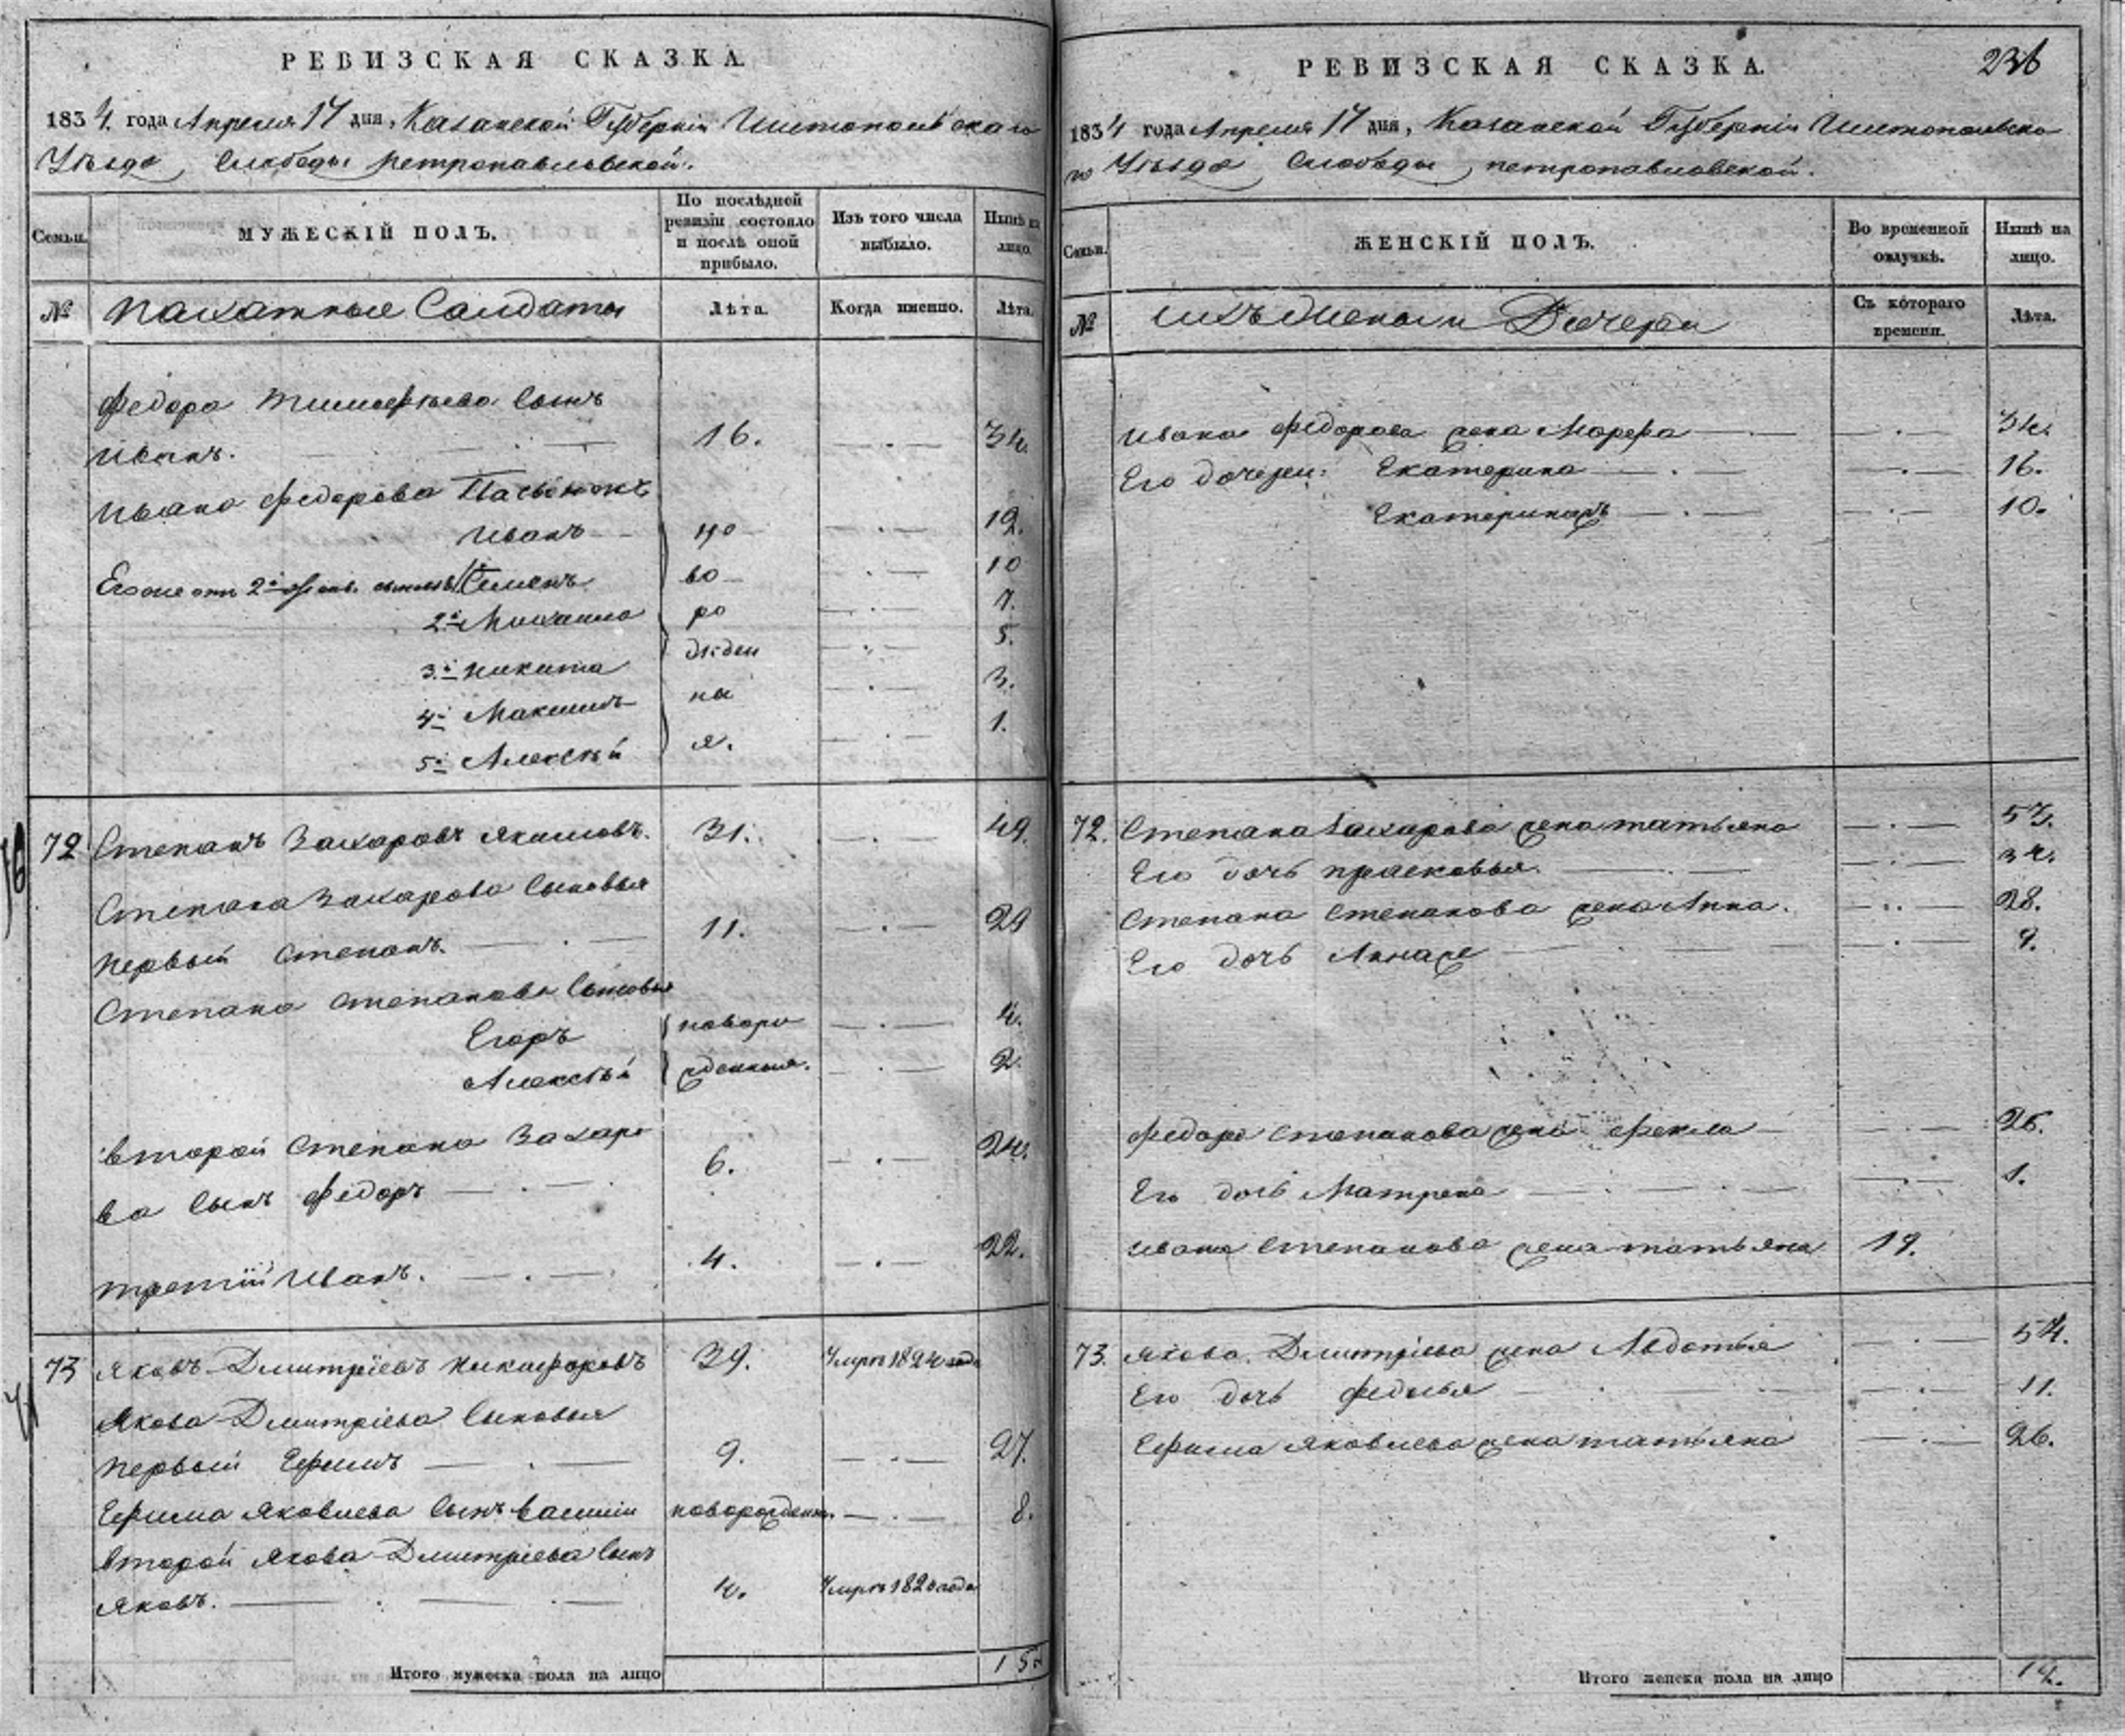 РЕВИЗСКАЯ СКАЗКА
1834 года Апреля 17 дня, Казанской Губерніи Чистопольскаго
Уѣзда, Слободы петропавловской.
Семьи.
МУЖЕСКІЙ ПОЛЪ.
По послѣдней ревизіи состояло и послѣ оной прибыло.
Изъ того числа выбыло.
Нынѣ на лицо.
№
пахатные Салдаты
Лѣта.
Когда именно.
Лѣта.
Федора тимофѣева Сынъ
Иванъ. 16. 34.
Ивана Федорова
Иванъ 12.
Его же отъ 2й сыновья Семенъ 10
2й Михаило 7.
3й никита 5.
4й Максимъ 3.
5й Алексѣй 1.
но
во
ро
жден
ны
я.
72 Степанъ Захаровъ Якимовъ. 31. 49.
Степана Захарова Сыновья
первый Степанъ. 11. 29
Степана Степанова Сыновья
Егоръ новоро 4.
Алексѣй жденныя. 2
второй Степана Захаро
ва Сынъ Федоръ 6. 24.
третій Иванъ. 4. 22.
73 Яковъ Дмитріевъ Никифоровъ 29. Умръ 1824 года
Якова Дмитріева Сыновья
первый Ефимъ 9. 27.
Ефима Яковлева Сынъ василіи новорожден. 8.
второй Якова Дмитріева Сынъ
Яковъ. 4. Умръ года
Итого мужеска пола на лицо 15
РЕВИЗСКАЯ СКАЗКА.
236
1834 года Апреля 17 дня, Казанской Губерніи Чистопольска
го Уѣзда Слободы петропавловской.
Семьи.
ЖЕНСКІЙ ПОЛЪ.
Во временной отлучкѣ.
Нынѣ на лицо.
№
ихъ Жены и Дочери
Съ котораго времени.
Лѣта.
Ивана Федорова жена Марфа 34.
Его дочери: Екатерина 16.
Екатерина жъ 10.
72. Степана Захарова жена татьяна 53.
Его дочь прасковья. 34.
Степана Степанова жена Анна. 28.
Его дочь Анна же 9.
Федора Степанова жена Фекла 26.
Его дочь Матрена 1.
Ивана Степанова жена татьяна 19.
73. Якова Дмитріева жена Авдотья 54.
Его дочь Федосья 11.
Ефима Яковлева жена татьяна 26.
Итого женска пола на лицо 14.